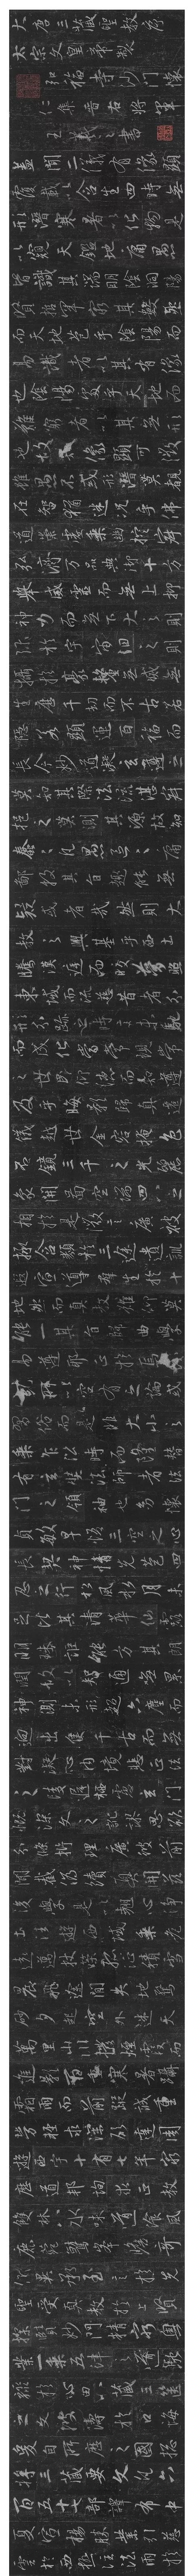 大唐三藏聖教序
太宗文皇帝製
弘福寺沙門懷
仁集晉右將軍
王羲之書
蓋聞二儀有像顯
覆載以含生四時無
形潛寒暑以化物是
以窺天鑑地庸愚
皆識其端明陰洞陽
賢哲罕窮其數然
而天地苞乎陰陽而
易識者以其有像
也陰陽處乎天地而
難窮者以其無形
也故知像顯可徵
雖愚不惑形潛莫覩
在智猶迷況乎佛
道崇虛乘幽控寂
弘濟萬品典御十方
舉威靈而無上抑
神力而無下大之則
彌於宇宙細之則
攝於豪釐無滅無
生歷千劫而不古若
隱若顯運百福而
長今妙道凝玄遵之
莫知其際法流湛寂
挹之莫測其源故知
蠢蠢凡愚區區庸
鄙投其旨趣能無
疑或者哉然則大
教之興基乎西土
騰漢庭而皎夢照
東域而流慈昔者分
形分跡之時言未馳
而成化當常現常
之世民仰德而知遵
及乎晦影歸真遷
儀越世金容掩色
不鏡三千之光麗
象開圖空端四八之
相於是微言廣被
拯含類於三途遺訓
遐宣導群生於十
地然而真教難仰莫
能一其旨歸曲學
易遵耶正於焉
紛糾所以空有之論或
習俗而是非大小之
乘乍沿時而隆替
有玄奘法師者法
門之領袖也幼懷
貞敏早悟三空之心
長契神情先苞四
忍之行松風水月未
足比其清華仙露
明珠詎能方其朗
潤故以智通無累
神測未形超六塵而
迥出隻千古而無
對凝心內境悲正法
之陵遲栖慮玄門
慨深文之訛謬思欲
分條析理廣彼前
聞截偽續真開茲
後學是以翹心淨
土往遊西域乘危
遠邁杖策孤征積雪
晨飛途間失地驚
砂夕起空外迷天
萬里山川撥煙霞而
進影百重寒暑躡
霜雨而前蹤誠重
勞輕求深願達周
遊西宇十有七年窮
歷道邦詢求正教
雙林八水味道飡風
鹿菀鷲峰瞻奇
仰異承至言於先
聖受真教於上賢
探賾妙門精窮奧
業一乘五律之道馳
驟於心田八藏三篋
之文波濤於口海
爰自所歷之國總
將三藏要文凡六
百五十七部譯布中
夏宣揚勝業引慈
雲於西極注法雨於